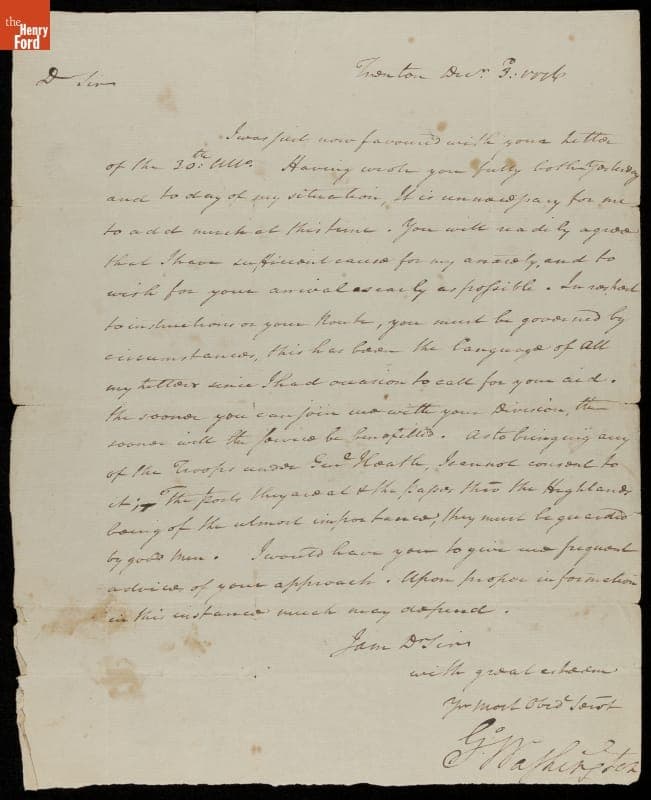 the
Henry
Ford
Trenton Decr. 3d. 1776
Dr Sir
I was just now favoured with your Letter
of the 30th. Ulto. Having wrote you fully both yesterday
and to day of my situation, It is unnecessary for me
to add much at this time. You will readily agree
that I have sufficient cause for my anxiety, and to
wish for your arrival as early as possible. In respect
to instructions on your Route, you must be governed by
circumstances, this has been the language of all
my Letters since I had occasion to call for your aid.
the sooner you can join me with your division, the
sooner will the service be benefitted. As to bringing any
of the Troops under Genl. Heath, I cannot consent to
it; The posts they are at & the passes thro the Highlands
being of the utmost importance, they must be guarded
by good men. I would have you to give me frequent
advices of your approach. Upon proper information
in this instance much may depend.
I am Dr Sir
with great esteem
Yr Most Obedt Servt
Go: Washington